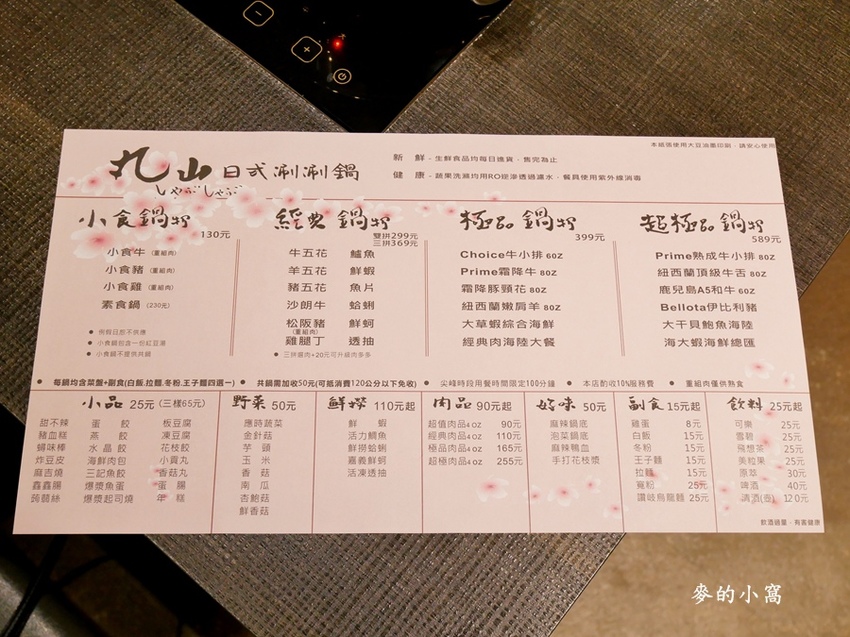 本紙張使用大豆油墨印刷，請安心使用
丸山日式涮涮鍋
しゃぶしゃぶ
新 鮮 - 生鮮食品均每日進貨，售完為止
健 康 - 蔬果洗滌均用RO逆滲透過濾水，餐具使用紫外線消毒
小食鍋物
130元
小食牛 (重組肉)
小食豬 (重組肉)
小食雞 (重組湯)
素食鍋 (230元)
● 例假日恕不供應
● 小食鍋包含一份紅豆湯
● 小食鍋不提供共鍋
經典鍋物
雙拼299元
三拼369元
牛五花 鱸魚
羊五花 鮮蝦
豬五花 魚片
沙朗牛 蛤蜊
松阪豬 鮮蚵
(重組肉)
雞腿丁 透抽
● 三拼醬肉+20元可升級肉多多
極品鍋物
399元
Choice牛小排 6OZ
Prime霜降牛 8OZ
霜降豚頸花 8OZ
紐西蘭嫩肩羊 8OZ
大草蝦綜合海鮮
經典肉海陸大餐
超極品鍋物
589元
Prime熟成牛小排 8OZ
紐西蘭頂級牛舌 8OZ
鹿兒島A5和牛 6OZ
Bellota伊比利豬
大干貝鮑魚海陸
海大蝦海鮮總匯
● 每鍋均含菜盤+副食(白飯.拉麵.冬粉.王子麵四選一) ● 共鍋需加收50元(可抵消費120公分以下免收) ● 尖峰時段用餐時間限定100分鐘 ● 本店酌收10%服務費 ● 重組肉僅供熟食
小品 25元 (三樣65元)
甜不辣 蛋餃 板豆腐
豬血糕 燕餃 凍豆腐
蟳味棒 水晶餃 花枝餃
炸豆皮 海鮮肉包 小貢丸
麻吉燒 三記魚餃 香菇丸
鑫鑫腸 爆漿魚蛋 蛋腸
蒟蒻絲 爆漿起司燒 年糕
野菜 50元
應時蔬菜
金針菇
芋頭
玉米
香菇
南瓜
杏鮑菇
鮮香菇
鮮撈 110元起
鮮蝦
活力鯛魚
鮮撈蛤蜊
嘉義鮮蚵
活凍透抽
肉品 90元起
超值肉品4oz 90元
經典肉品4oz 110元
極品肉品4oz 165元
超極肉品4oz 255元
好味 50元
麻辣鍋底
泡菜鍋底
麻辣鴨血
手打花枝漿
副食 15元起
雞蛋 8元
白飯 15元
冬粉 15元
王子麵 15元
拉麵 15元
寬粉 25元
讚岐烏龍麵 25元
飲料 25元起
可樂 25元
雪碧 25元
飛想茶 25元
美粒果 25元
原萃 30元
啤酒 40元
清酒(壺) 120元
飲酒過量，有害健康
麥的小窩